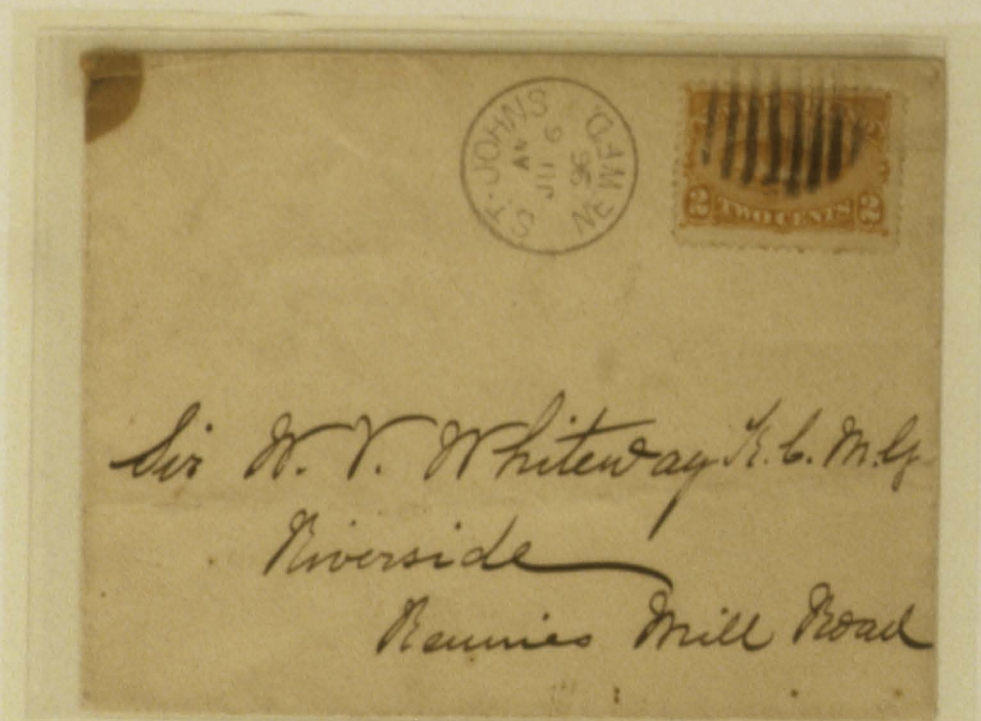 ST. JOHN'S
NEWF'D.
AM
JU 6
96
2 TWO CENTS 2
Sir W. V. Whiteway K.C.M.G
Riverside
Rennies Mill Road